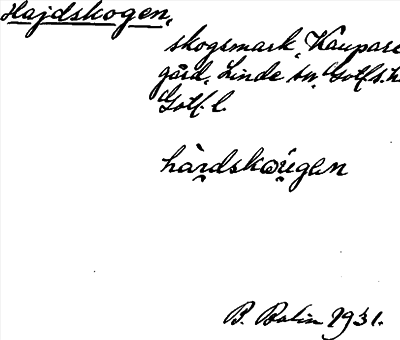 Hajdskogen,
skogsmark, Kaupare
gård, Linde sn, Gotl. s. h.
Gotl. l.
hàrdskωúgan
B. Bolin 1931.